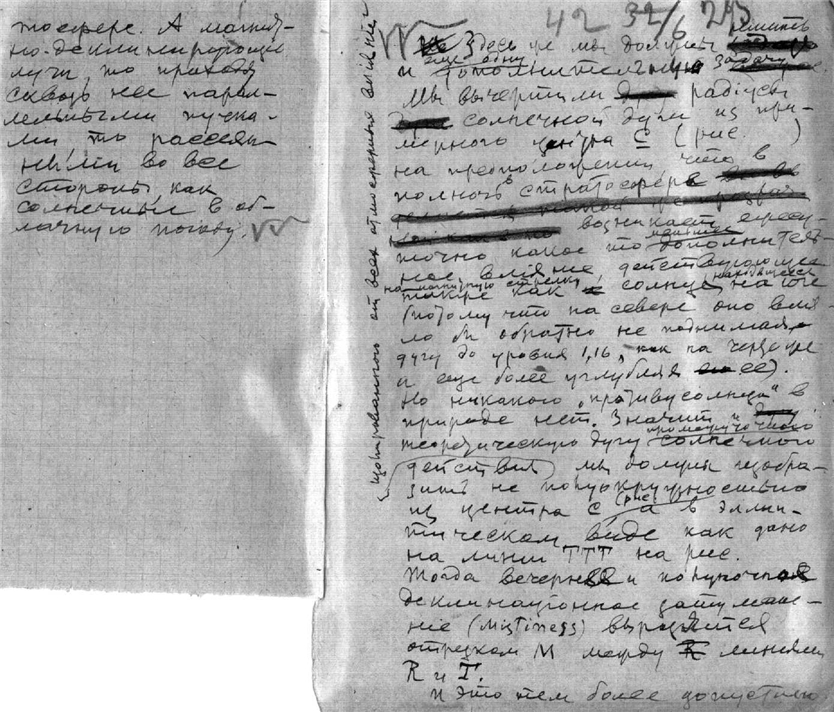 тосфере. А магнит-
но-деклинирующие
лучи, то проходя
сквозь нее парал-
лельными пучка-
ми то рассеян-
ными во все
стороны как
солнечные в об-
лачную погоду.
42 32/6
Здесь же мы должны решить
и еще одну дополнительную задачу
Мы вычертили радіусы
солнечной дуги из при-
мерного центра С (рис. )
на предположении что в
полночь в стратосфере
возникает
точно какое то дополнитель-
ное вліяние, действующее
на магнитную стрелку также как солнце находящееся на юге
(потому что на севере оно влія-
ло бы обратно не поднимая
дугу до уровня 1,16, как на чертеже
и еще более углубляя ее).
Но никакого „противусолнца" в
природе нет. Значит и
теоретическую дугу
действия мы должны изобра-
зить не полуокружностью
из центра С (рис. а в эллип-
тическом виде как дано
на линии ТТТ на рис.
Тогда вечернее и полуночное
деклинаціонное затумане-
ніе (Mistiness) выразится
отрезком М между линиями
R и T.
И это тем более допустимо
от всей атмосферы вліяніе